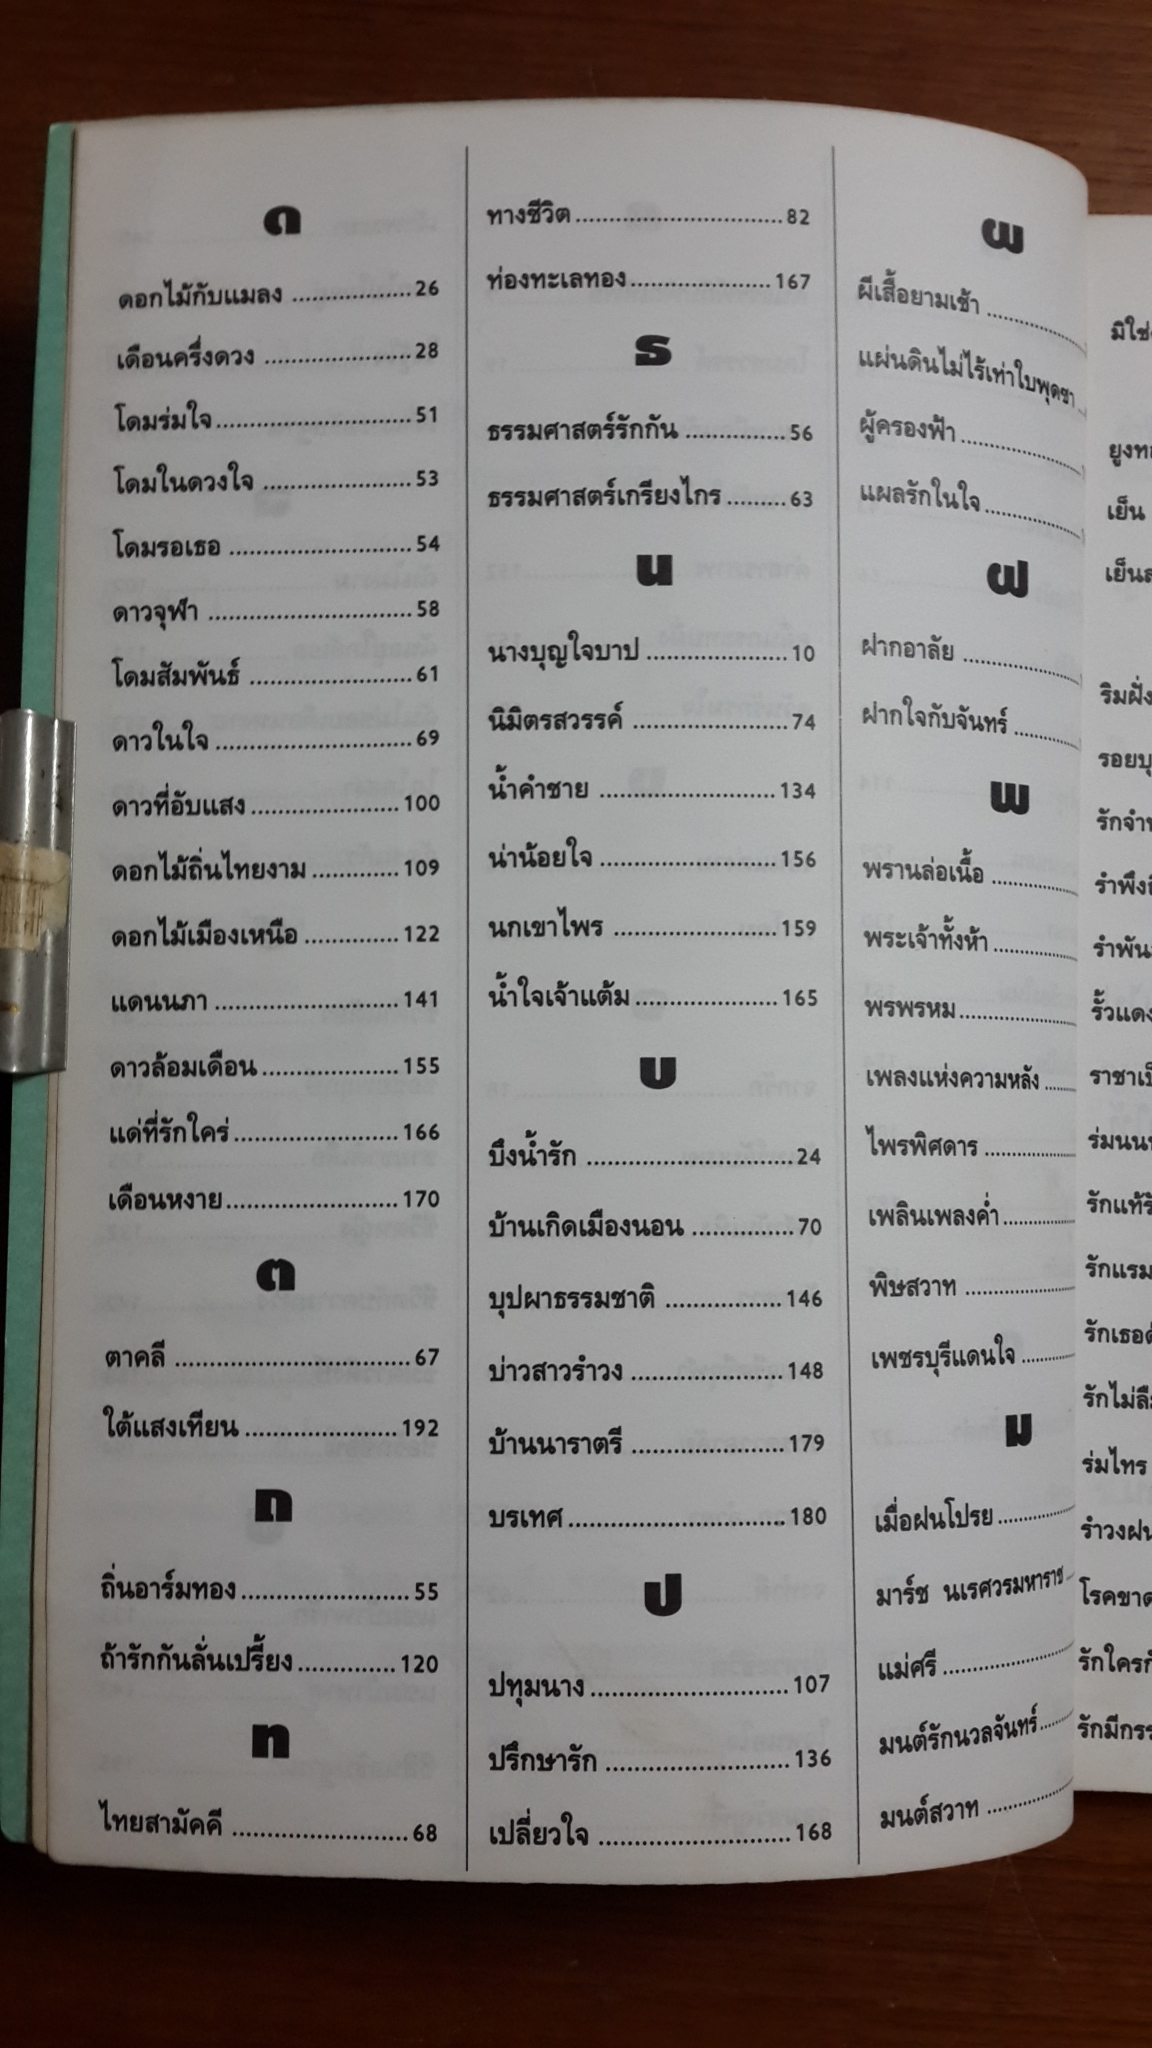 ด
ดอกไม้กับแมลง ..................26
เดือนครึ่งดวง ......................28
โดมร่มใจ..............................51
โดมในดวงใจ ......................53
โดมรอเธอ ...........................54
ดาวจุฬา ..............................58
โดมสัมพันธ์ ........................61
ดาวในใจ .............................69
ดาวที่อับแสง ......................100
ดอกไม้ถิ่นไทยงาม .............109
ดอกไม้เมืองเหนือ ..............122
แดนนภา ...........................141
ดาวล้อมเดือน ....................155
แด่ที่รักใคร่ ........................166
เดือนหงาย..........................170
ต
ตาคลี ..................................67
ใต้แสงเทียน ......................192
ถ
ถิ่นอาร์มทอง.........................55
ถ้ารักกันลั่นเปรี้ยง..............120
ท
ไทยสามัคคี ..........................68
ทางชีวิต ..............................82
ท่องทะเลทอง....................167
ธ
ธรรมศาสตร์รักกัน ...............56
ธรรมศาสตร์เกรียงไกร .........63
น
นางบุญใจบาป .....................10
นิมิตรสวรรค์ .......................74
น้ำคำชาย ..........................134
น่าน้อยใจ ..........................156
นกเขาไพร ........................159
น้ำใจเจ้าแต้ม.....................165
บ
บึงน้ำรัก ..............................24
บ้านเกิดเมืองนอน ...............70
บุปผาธรรมชาติ .................146
บ่าวสาวรำวง ......................148
บ้านนาราตรี ......................179
บรเทศ................................180
ป
ปทุมนาง.............................107
ปรึกษารัก ..........................136
เปลี่ยวใจ ............................168
ผ
ผีเสื้อยามเช้า ................
แผ่นดินไม่ไร้เท่าใบพุดซา
ผู้ครองฟ้า....................
แผลรักในใจ.................
ฝ
ฝากอาลัย ....................
ฝากใจกับจันทร์ ............
พ
พรานล่อเนื้อ ................
พระเจ้าทั้งห้า ................
พรพรหม......................
เพลงแห่งความหลัง ......
ไพรพิศดาร ..................
เพลินเพลงค่ำ................
พิษสวาท .....................
เพชรบุรีแดนใจ ............
ม
เมื่อฝนโปรย .................
มาร์ช นเรศวรมหาราช
แม่ศรี ..........................
มนต์รักนวลจันทร์.........
มนต์สวาท ...................
เย็น
ร่มไทร